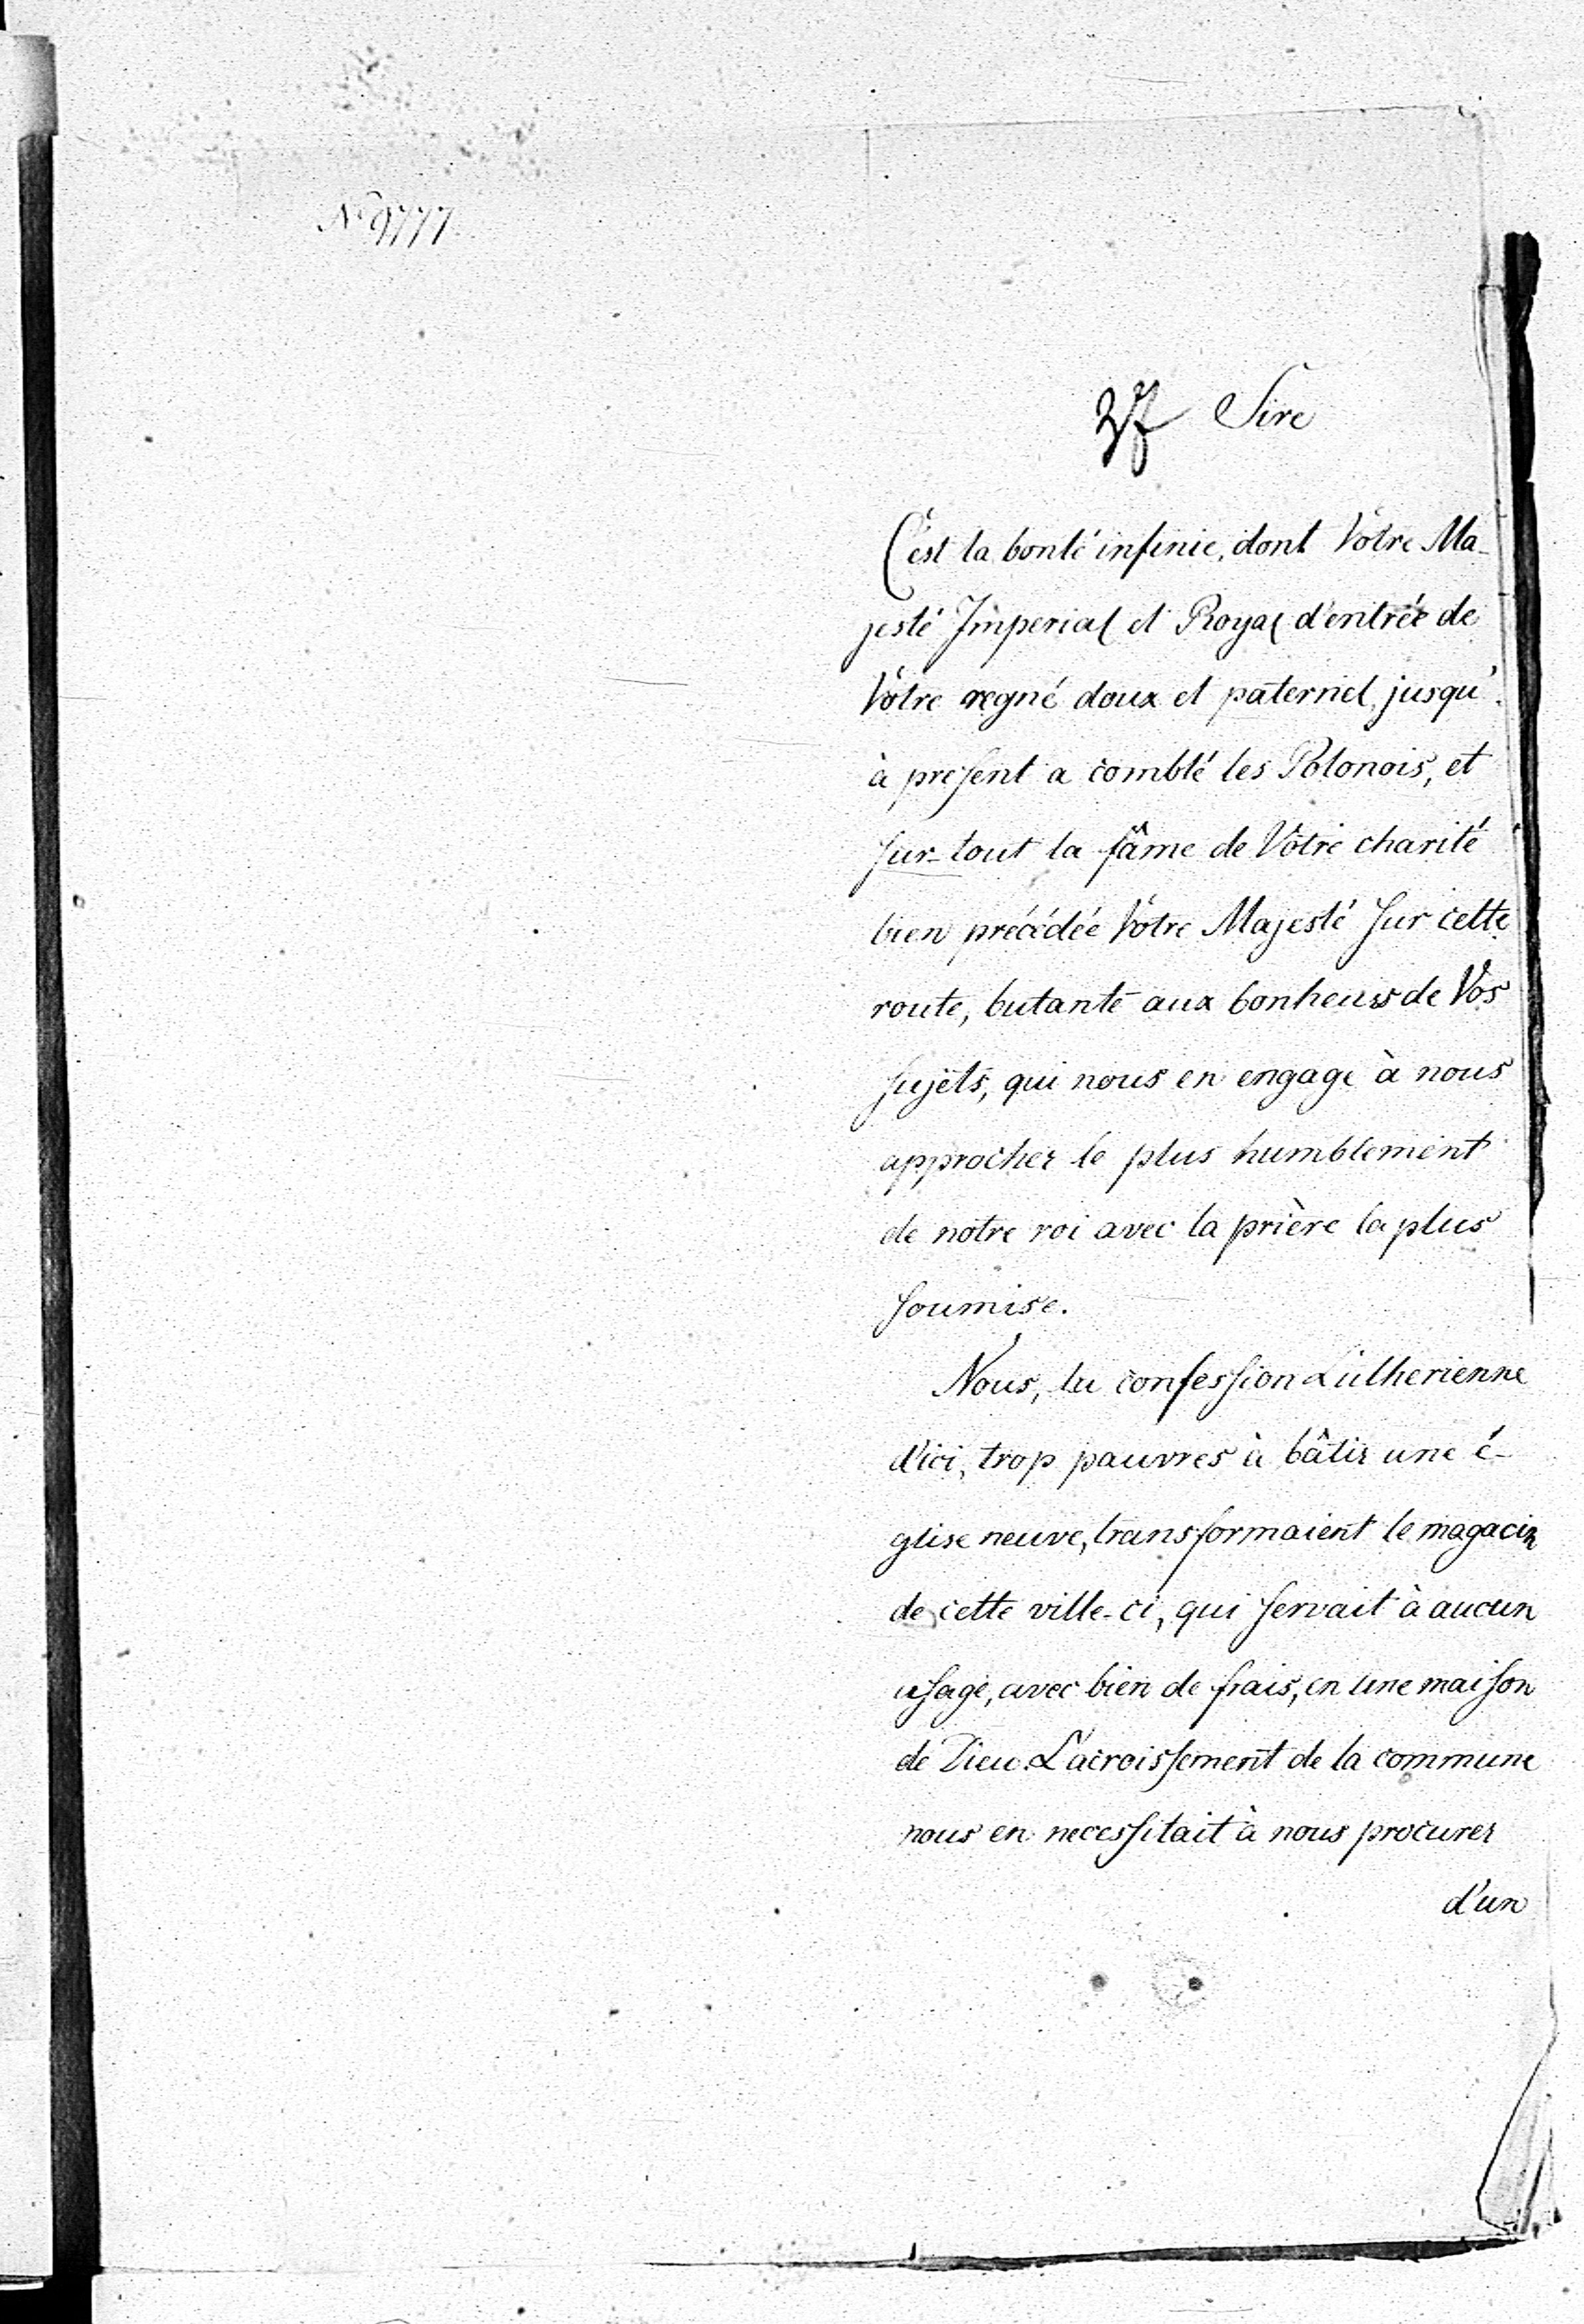 No 9777.
Sire
C'est la bonté infinie, dont Vôtre Ma-
jesté Imperial et Royal d'entrée de
Vôtre regné doux et paternel, jusqu'
à preſent a comblé les Polonois, et
ſur-tout la fâme de Vôtre charité
bien précédée Vôtre Majesté ſur cette
route, butante aux bonheurs de Vos
ſujets, qui nous en engage à nous
approcher le plus humblement
de notre roi avec la prière la plus
ſoumise.
Nous, la confesſion Lutherienne
d'ici, trop pauvres à bâtir une é-
glise neuve, transformaient le magacin
de cette ville-ci, qui ſervait à aucun
uſage, avec bien de frais, en une maiſon
de Dieu. L'acroisſement de la commune
nous en necesſitait à nous procurer
d'un